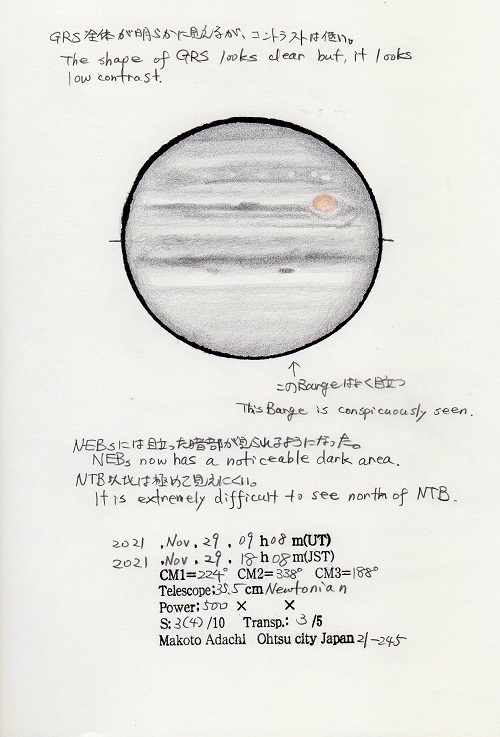 GRS全体が明らかに見えるが、コントラストは低い。
The shape of GRS looks clear but, it looks
low contrast.
↑
このBargeはよく目立つ
This Barge is conspicuously seen.
NEBsには目立った暗部が見られるようになった。
NEBs now has a noticeable dark area.
NTB以北は極めて見えにくい。
It is extremely difficult to see north of NTB.
2021 .Nov. 29, 09 h 08 m(UT)
2021 .Nov. 29, 18 h 08 m(JST)
CM1=224° CM2=338° CM3=188°
Telescope:35.5cm Newtonian
Power: 500 × ×
S: 3(4)/10 Transp.: 3/5
Makoto Adachi Ohtsu city Japan 21-245